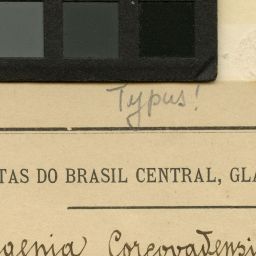 Typus!
TAS DO BRASIL CENTRAL, GLA
genia Corcovadensi